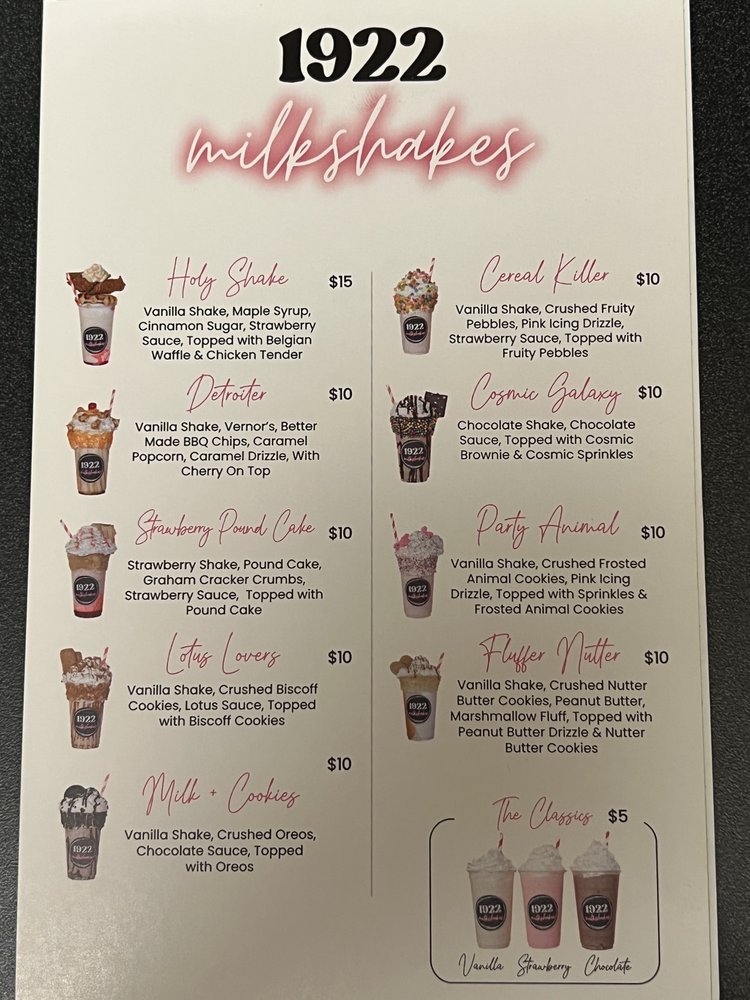 1922
milkshakes
Holy Shake $15
Vanilla Shake, Maple Syrup,
Cinnamon Sugar, Strawberry
Sauce, Topped with Belgian
Waffle & Chicken Tender
Detroiter $10
Vanilla Shake, Vernor's, Better
Made BBQ Chips, Caramel
Popcorn, Caramel Drizzle, With
Cherry On Top
Strawberry Pound Cake $10
Strawberry Shake, Pound Cake,
Graham Cracker Crumbs,
Strawberry Sauce, Topped with
Pound Cake
Lotus Lovers $10
Vanilla Shake, Crushed Biscoff
Cookies, Lotus Sauce, Topped
with Biscoff Cookies
$10
Milk + Cookies
Vanilla Shake, Crushed Oreos,
Chocolate Sauce, Topped
with Oreos
Cereal Killer $10
Vanilla Shake, Crushed Fruity
Pebbles, Pink Icing Drizzle,
Strawberry Sauce, Topped with
Fruity Pebbles
Cosmic Galaxy $10
Chocolate Shake, Chocolate
Sauce, Topped with Cosmic
Brownie & Cosmic Sprinkles
Party Animal $10
Vanilla Shake, Crushed Frosted
Animal Cookies, Pink Icing
Drizzle, Topped with Sprinkles &
Frosted Animal Cookies
Fluffer Nutter $10
Vanilla Shake, Crushed Nutter
Butter Cookies, Peanut Butter,
Marshmallow Fluff, Topped with
Peanut Butter Drizzle & Nutter
Butter Cookies
The Classics $5
1922 milkshakes
1922 milkshakes
1922 milkshakes
Vanilla Strawberry Chocolate